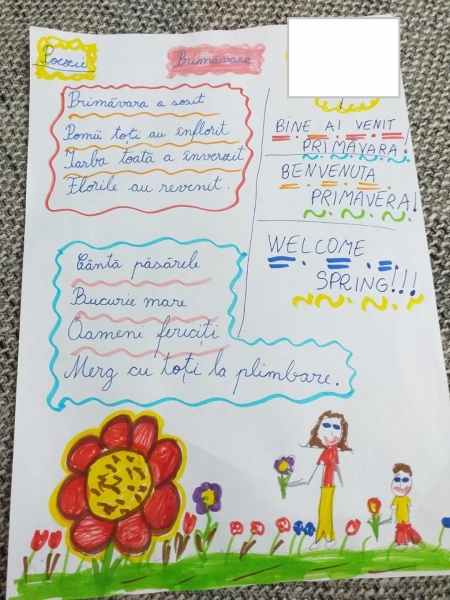 Poezii
Primăvara
Primăvara a sosit
Pomii toți au înflorit
Iarba toată a înverzit
Florile au revenit.
Cântă păsărele
Bucurie mare
Oameni fericiți
Merg cu toți la plimbare.
BINE AI VENIT
PRIMAVARA!
BENVENUTA
PRIMAVERA!
WELCOME
SPRING!!!